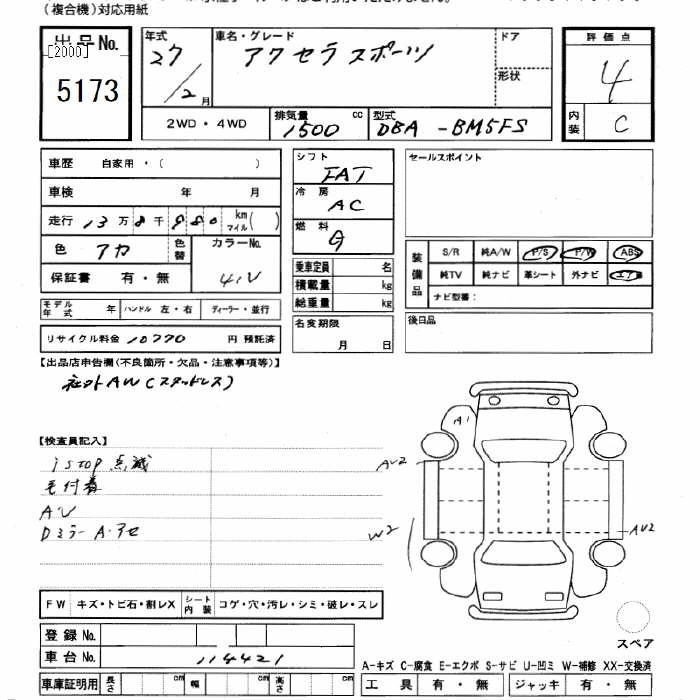 (複合機)対応用紙
出品No.
[2000]
5173
年式
27/2月
車名・グレード
アクセラスポーツ
ドア
形状
評価点
4
内装
C
2WD・4WD
排気量
1500 cc
型式
DBA-BM5FS
車歴 自家用・( )
車検 年 月
走行 13万8千980 km マイル( )
色 アカ 色替 カラーNo. 41V
保証書 有・無
モデル年式 年 ハンドル 左・右 ディーラー・並行
リサイクル料金 10770 円 預託済
シフト
FAT
冷房
AC
燃料
G
乗車定員 名
積載量 kg
総重量 kg
名変期限
月 日
セールスポイント
装備品
S/R 純A/W P/S P/W ABS
純TV 純ナビ 革シート 外ナビ エアB
ナビ型番:
後日品
【出品店申告欄(不良箇所・欠品・注意事項等)】
社外AW(スタッドレス)
【検査員記入】
i stop 点滅
毛付着
AU
Dミラー A・アセ
A1
AU2
W2
AU2
スペア
FW キズ・トビ石・割レX シート内装 コゲ・穴・汚レ・シミ・破レ・スレ
登録No.
車台No. 114421
A-キズ C-腐食 E-エクボ S-サビ U-凹ミ W-補修 XX-交換済
車庫証明用 長さ cm 幅 cm 高さ cm
工具 有・無 ジャッキ 有・無